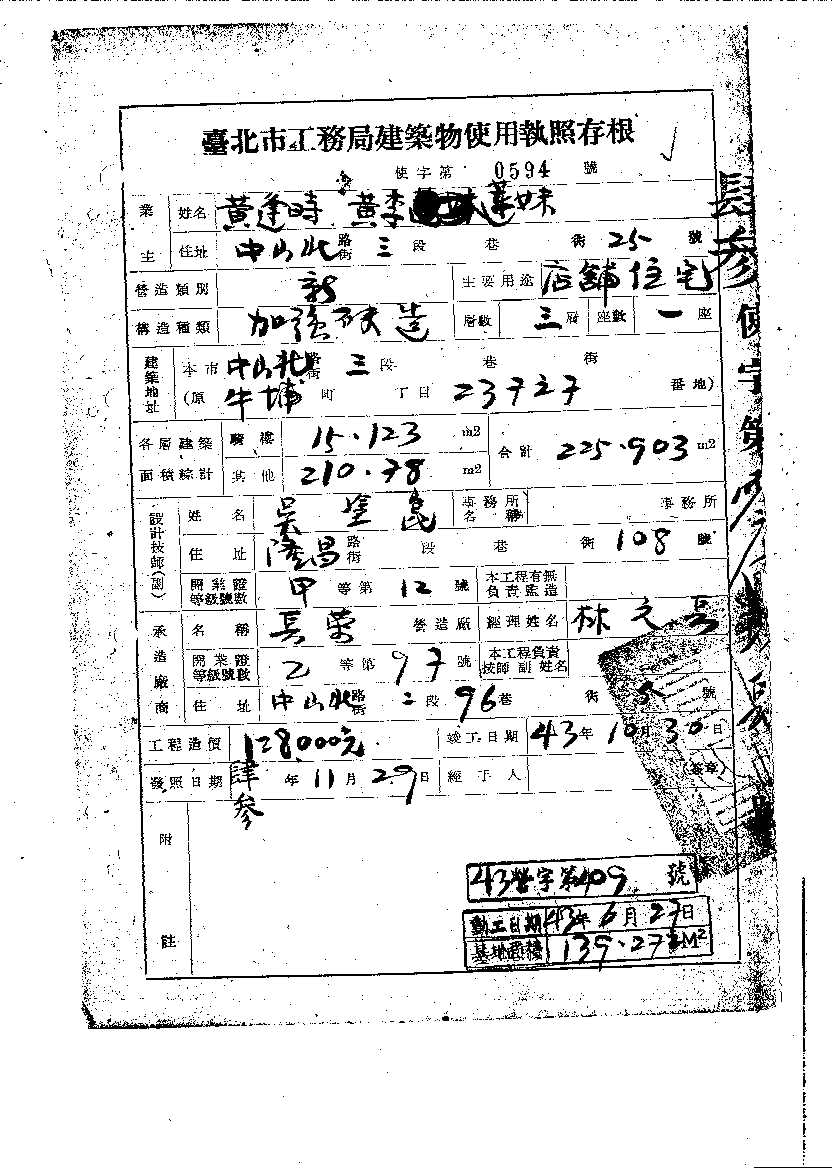 臺北市工務局建築物使用執照存根
使字第 0594 號
業主 姓名 黃逢時 黃李蓮妹
住址 中山北路街 三段 巷 街 25 號
營造類別 新 主要用途 店舖住宅
構造種類 加強磚造 層數 三層 座數 一座
建築地址 本市 中山北路街 三段 巷 街
(原 牛埔町 丁目 23727 番地)
各層建築面積綜計 騎樓 15.123 m2 合計 225.903 m2
其他 210.78 m2
設計技師(副) 姓名 吳塗 事務所名稱 事務所
住址 路街 段 巷 街 108 號
開業證等級號數 甲等第 12 號 本工程有無負責監造
承造廠商 名稱 長榮 營造廠 經理姓名 林之長
開業證等級號數 乙等第 97 號 本工程負責技師副姓名
住址 中山北路街 二段 96 巷 街 號
工程造價 128000元 竣工日期 43年10月30日
發照日期 肆參年11月29日 經手人 (簽章)
附註
43營字第409號
動工日期 43年6月27日
基地面積 139.27 M²
使字第